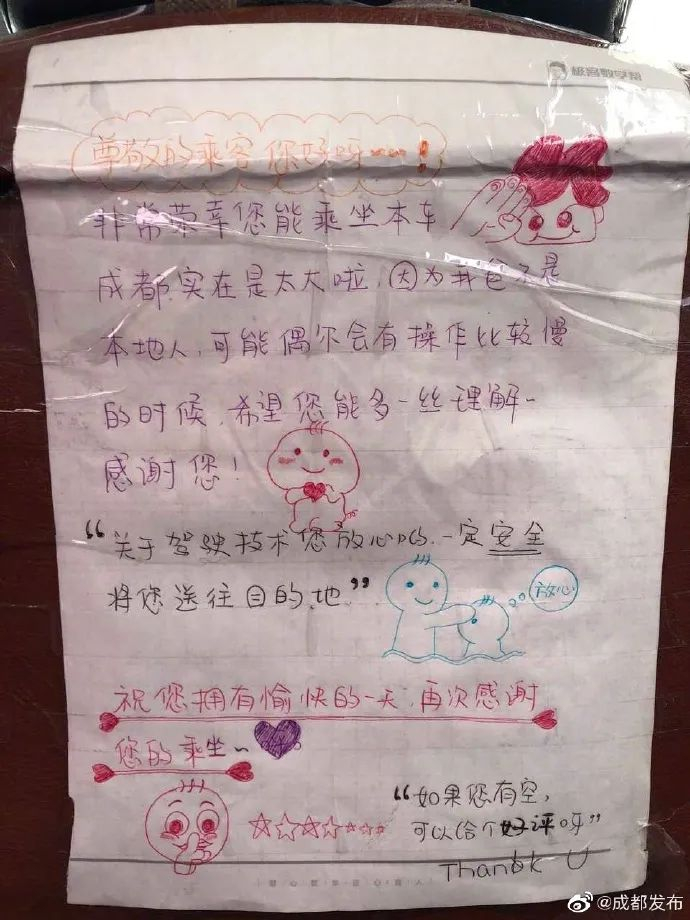 极客数学帮
尊敬的乘客你好呀~~~!
非常荣幸您能乘坐本车
成都实在是太大啦,因为我爸不是
本地人,可能偶尔会有操作比较慢
的时候,希望您能多一丝理解~
感谢您!
“关于驾驶技术您放心哟,一定安全
将您送往目的地”
放心
祝您拥有愉快的一天,再次感谢
您的乘坐~
“如果您有空,
可以给个好评呀”
Thank U
@成都发布